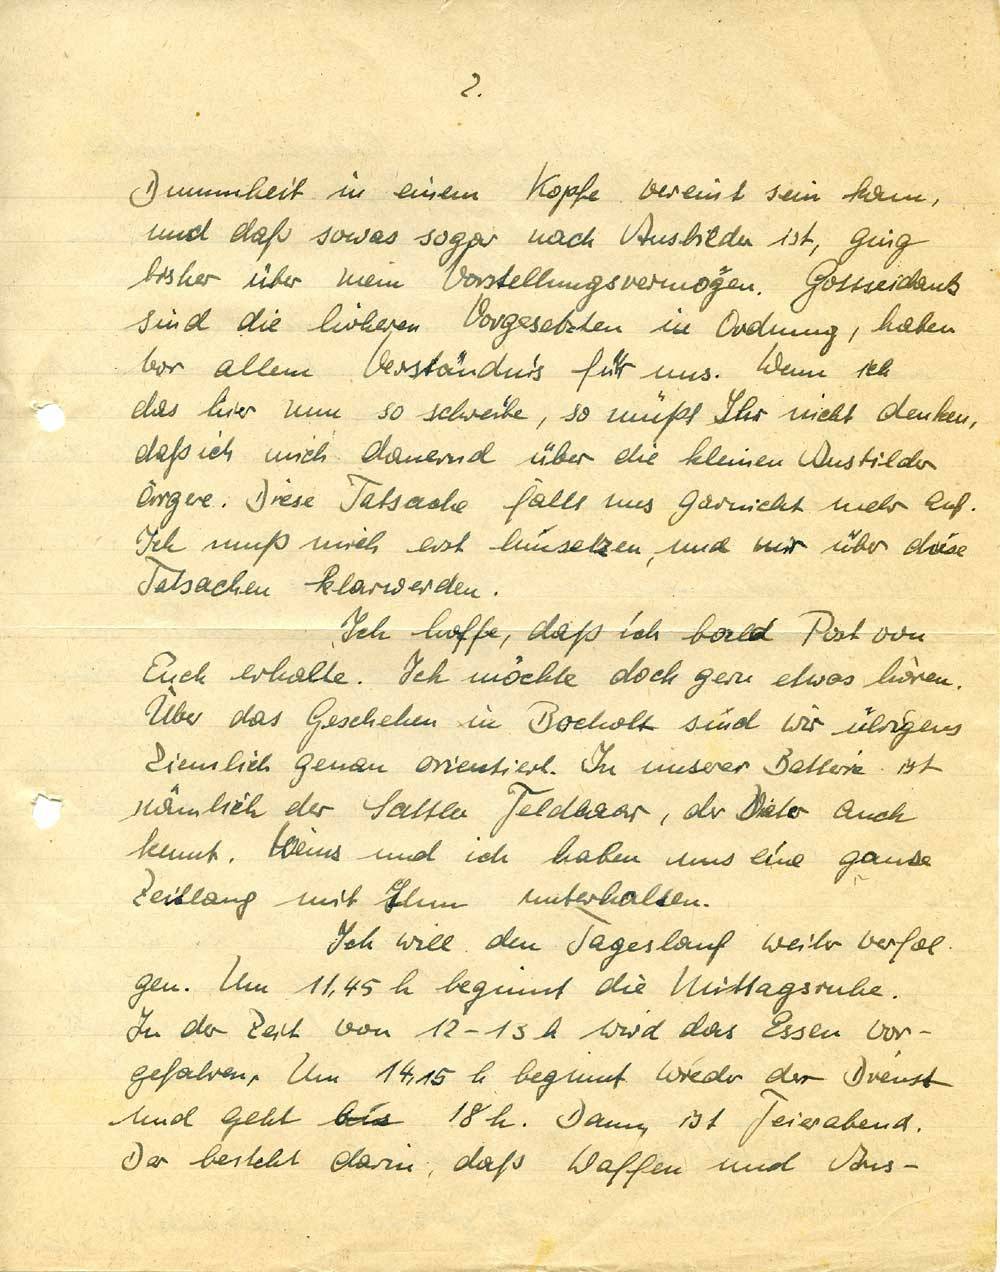 2.
Dummheit in einem Kopfe vereint sein kann,
und daß sowas sogar noch Ausbilder ist, ging
bisher über mein Vorstellungsvermögen. Gottseidank
sind die höheren Vorgesetzten in Ordnung, haben
vor allem Verständnis für uns. Wenn ich
das hier nun so schreibe, so müßt Ihr nicht denken,
daß ich mich dauernd über die kleinen Ausbilder
ärgere. Diese Tatsache fällt uns garnicht mehr auf.
Ich muß mich erst hinsetzen, und mir über diese
Tatsachen klarwerden.
Ich hoffe, daß ich bald Post von
Euch erhalte. Ich möchte doch gern etwas hören.
Über das Geschehen in Bocholt sind wir übrigens
ziemlich genau orientiert. In unserer Batterie ist
nämlich der Sattler Feldhaar, der Dieter auch
kennt. Heins und ich haben uns eine ganze
Zeitlang mit Ihm unterhalten.
Ich will den Tageslauf weiter verfol
gen. Um 11,45 h beginnt die Mittagsruhe.
In der Zeit von 12-13 h wird das Essen vor-
gefahren. Um 14,15 h beginnt wieder der Dienst
und geht bis 18 h. Dann ist Feierabend.
Der besteht darin, daß Waffen und Aus-